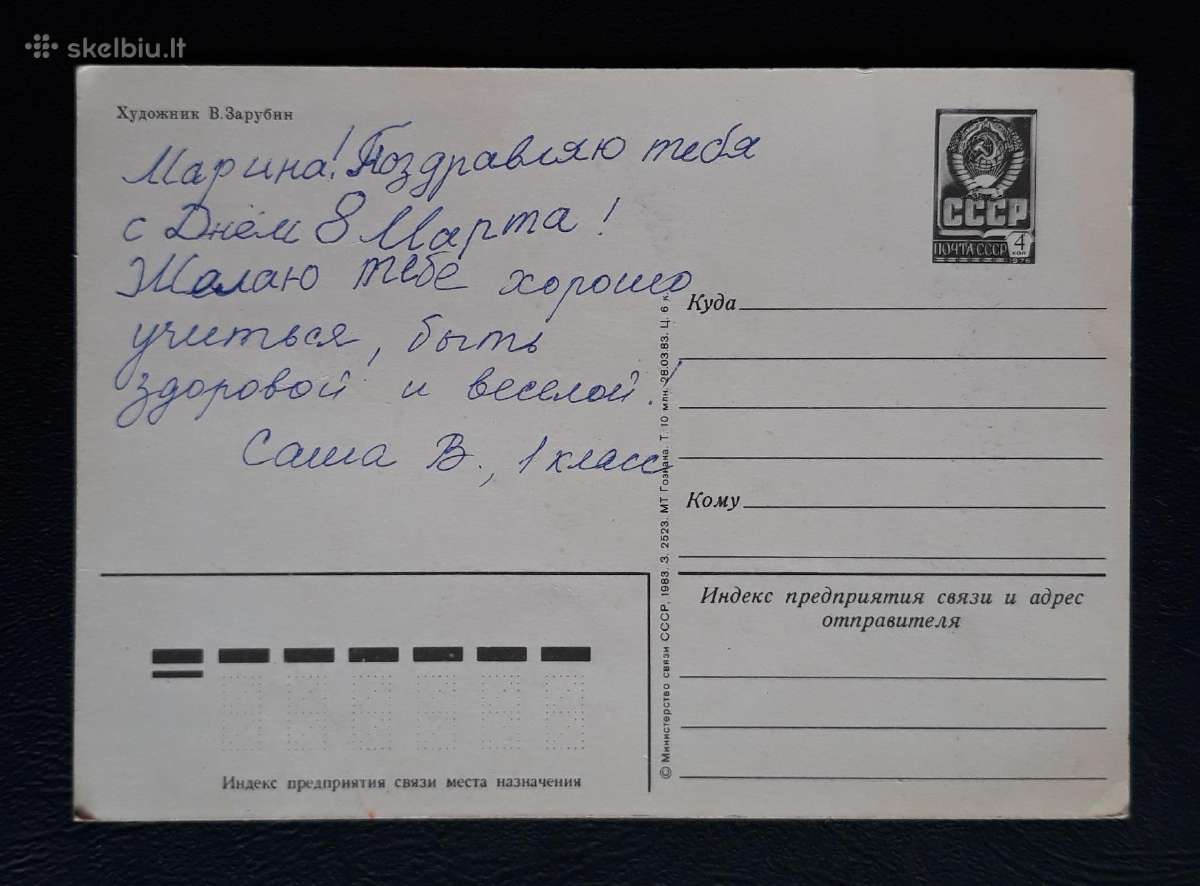 skelbiu.lt
Художник В.Зарубин
Марина! Поздравляю тебя
с Днём 8 Марта!
Желаю тебе хорошо
учиться, быть
здоровой и веселой!
Саша В., 1 класс
СССР
ПОЧТА СССР 4
КОП
1976
Куда
Кому
Индекс предприятия связи и адрес
отправителя
© Министерство связи СССР, 1983. З. 2523. МТ Гознака. Т. 10 млн. 28.03.83. Ц. 6 к.
Индекс предприятия связи места назначения